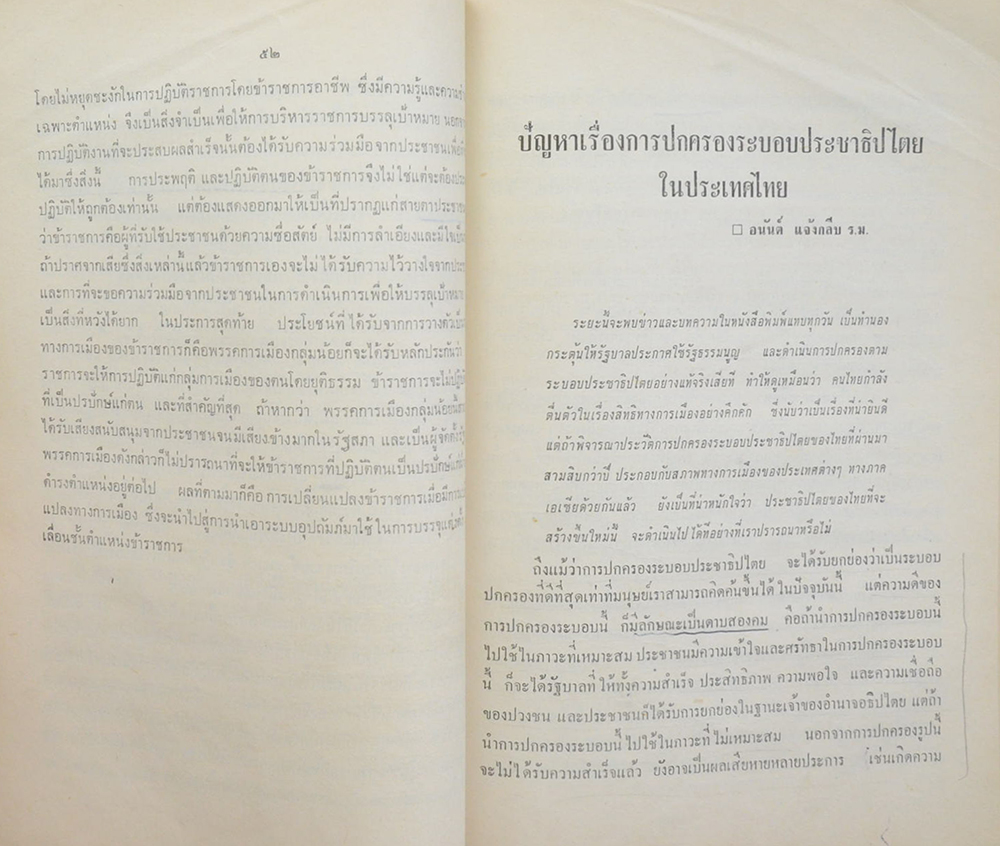 ๕๒
โดยไม่หยุดชะงักในการปฏิบัติราชการโดยข้าราชการอาชีพ ซึ่งมีความรู้และความ
เฉพาะตำแหน่ง จึงเป็นสิ่งจำเป็นเพื่อให้การบริหารราชการบรรลุเป้าหมาย นอกจาก
การปฏิบัติงานที่จะประสบผลสำเร็จนั้นต้องได้รับความร่วมมือจากประชาชนเพื่อ
ได้มาซึ่งสิ่งนี้ การประพฤติ และปฏิบัติตนของข้าราชการจึงไม่ใช่แต่จะต้อง
ปฏิบัติให้ถูกต้องเท่านั้น แต่ต้องแสดงออกมาให้เป็นที่ปรากฏแก่สายตาประชาชน
ว่าข้าราชการคือผู้ที่รับใช้ประชาชนด้วยความซื่อสัตย์ ไม่มีการลำเอียงและมีใจเป็น
ถ้าปราศจากเสียซึ่งสิ่งเหล่านี้แล้วข้าราชการเองจะไม่ได้รับความไว้วางใจจาก
และการที่จะขอความร่วมมือจากประชาชนในการดำเนินการเพื่อให้บรรลุเป้าหมาย
เป็นสิ่งที่หวังได้ยาก ในประการสุดท้าย ประโยชน์ที่ได้รับจากการวางตัวเป็น
ทางการเมืองของข้าราชการก็คือพรรคการเมืองกลุ่มน้อยก็จะได้รับหลักประกันว่า
ราชการจะให้การปฏิบัติแก่กลุ่มการเมืองของตนโดยยุติธรรม ข้าราชการจะไม่ปฏิบัติ
ที่เป็นปรปักษ์แก่ตน และที่สำคัญที่สุด ถ้าหากว่า พรรคการเมืองกลุ่มน้อย
ได้รับเสียงสนับสนุนจากประชาชนจนมีเสียงข้างมากในรัฐสภา และเป็นผู้จัดตั้ง
พรรคการเมืองดังกล่าวก็ไม่ปรารถนาที่จะให้ข้าราชการที่ปฏิบัติตนเป็นปรปักษ์
ดำรงตำแหน่งอยู่ต่อไป ผลที่ตามมาก็คือ การเปลี่ยนแปลงข้าราชการเมื่อมีการ
แปลงทางการเมือง ซึ่งจะนำไปสู่การนำเอาระบบอุปถัมภ์มาใช้ในการบรรจุ
เลื่อนชั้นตำแหน่งข้าราชการ
ปัญหาเรื่องการปกครองระบอบประชาธิปไตย
ในประเทศไทย
□ อนันต์ แจ้งกลีบ ร.ม.
ระยะนี้จะพบข่าวและบทความในหนังสือพิมพ์แทบทุกวัน เป็นทำนอง
กระตุ้นให้รัฐบาลประกาศใช้รัฐธรรมนูญ และดำเนินการปกครองตาม
ระบอบประชาธิปไตยอย่างแท้จริงเสียที ทำให้ดูเหมือนว่า คนไทยกำลัง
ตื่นตัวในเรื่องสิทธิทางการเมืองอย่างคึกคัก ซึ่งนับว่าเป็นเรื่องที่น่ายินดี
แต่ถ้าพิจารณาประวัติการปกครองระบอบประชาธิปไตยของไทยที่ผ่านมา
สามสิบกว่าปี ประกอบกับสภาพทางการเมืองของประเทศต่างๆ ทางภาค
เอเชียด้วยกันแล้ว ยังเป็นที่น่าหนักใจว่า ประชาธิปไตยของไทยที่จะ
สร้างขึ้นใหม่นี้ จะดำเนินไปได้ดีอย่างที่เราปรารถนาหรือไม่
ถึงแม้ว่าการปกครองระบอบประชาธิปไตย จะได้รับยกย่องว่าเป็นระบอบ
ปกครองที่ดีที่สุดเท่าที่มนุษย์เราสามารถคิดค้นขึ้นได้ในปัจจุบันนี้ แต่ความดีของ
การปกครองระบอบนี้ ก็มีลักษณะเป็นดาบสองคม คือถ้านำการปกครองระบอบนี้
ไปใช้ในภาวะที่เหมาะสม ประชาชนมีความเข้าใจและศรัทธาในการปกครองระบอบ
นี้ ก็จะได้รัฐบาลที่ให้ทั้งความสำเร็จ ประสิทธิภาพ ความพอใจ และความเชื่อถือ
ของปวงชน และประชาชนก็ได้รับการยกย่องในฐานะเจ้าของอำนาจอธิปไตย แต่ถ้า
นำการปกครองระบอบนี้ไปใช้ในภาวะที่ไม่เหมาะสม นอกจากการปกครองรูปนี้
จะไม่ได้รับความสำเร็จแล้ว ยังอาจเป็นผลเสียหายหลายประการ เช่นเกิดความ